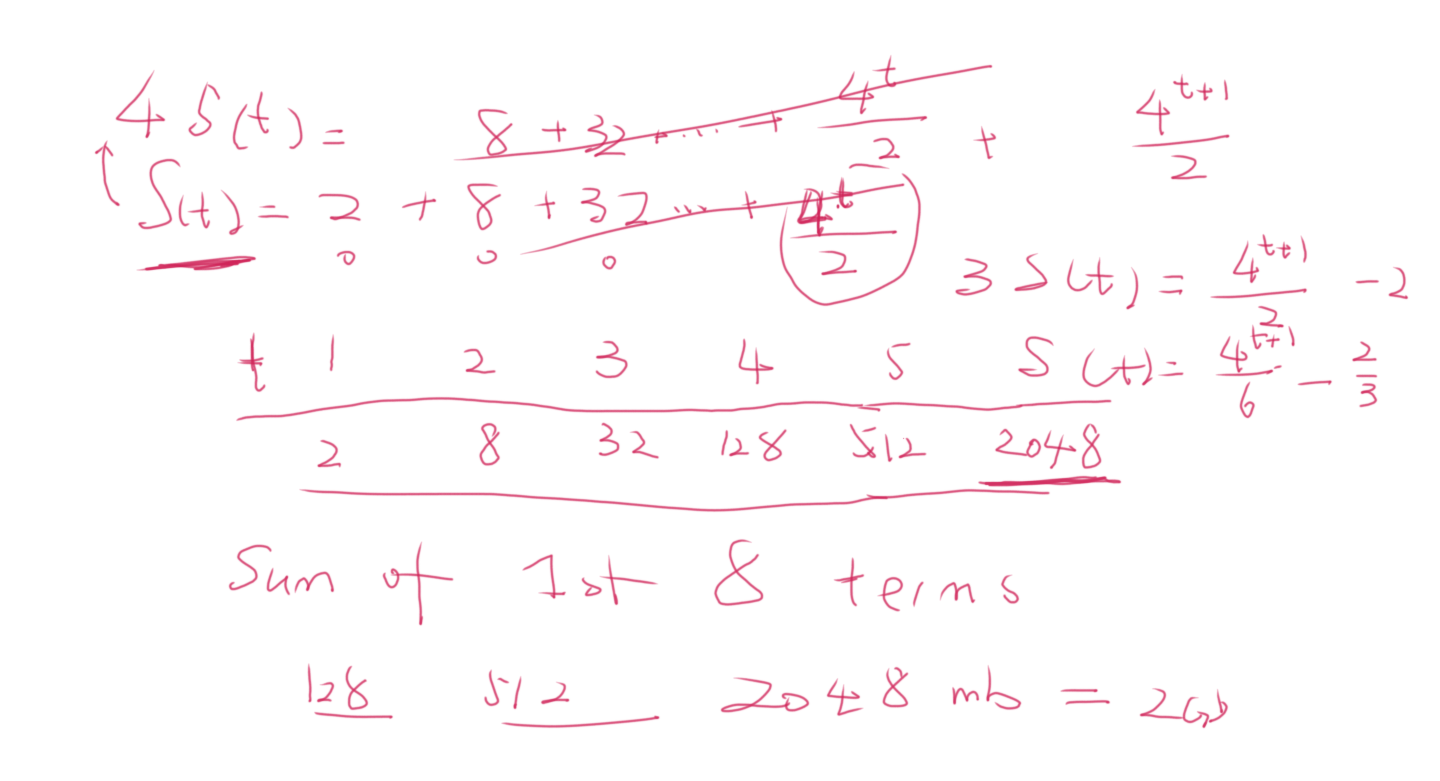 4 S(t) = 8 + 32 + ... + 4^t/2 + 4^(t+1)/2
S(t) = 2 + 8 + 32 ... + 4^t/2
3 S(t) = 4^(t+1)/2 - 2
t 1 2 3 4 5
S(t) = 4^(t+1)/6 - 2/3
2 8 32 128 512 2048
Sum of 1st 8 terms
128 512 2048 mb = 2Gb